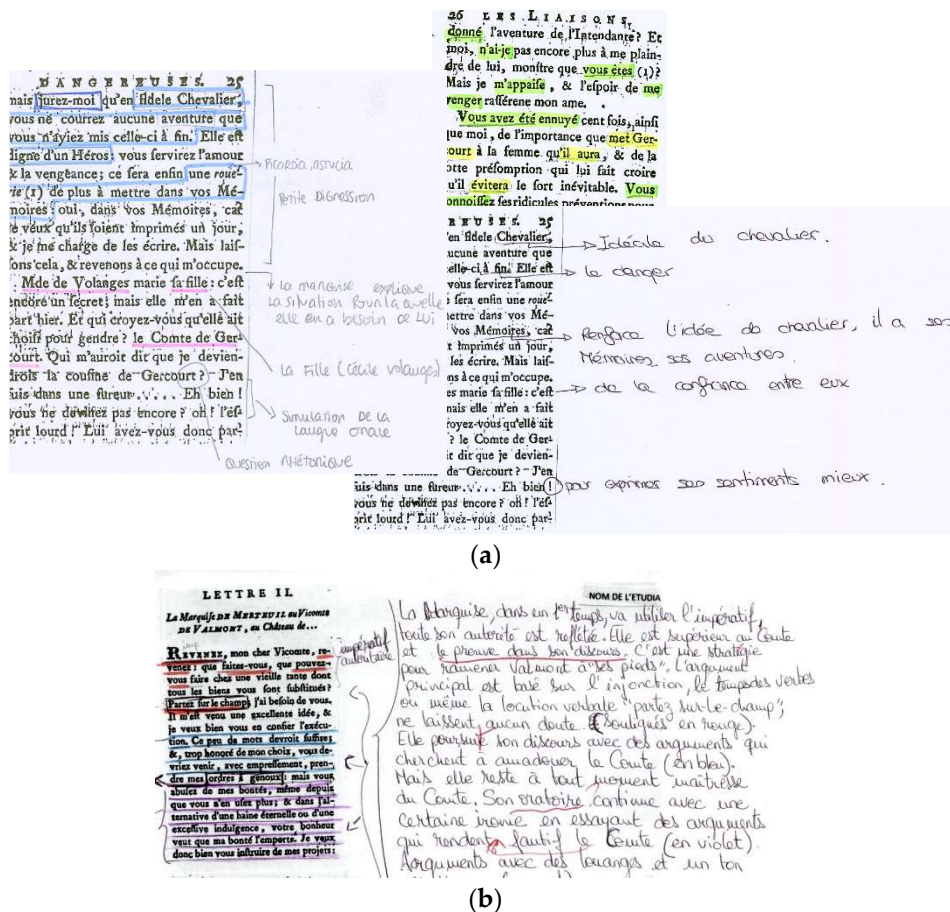 DANGEREUSES. 25
mais jurez-moi qu'en fidele Chevalier,
vous ne courrez aucune aventure que
vous n'ayiez mis celle-ci à fin. Elle est
digne d'un Héros: vous servirez l'amour
& la vengeance; ce sera enfin une roue-
rie (1) de plus à mettre dans vos Mé-
moires: oui, dans vos Mémoires, car
je veux qu'ils soient imprimés un jour,
& je me charge de les écrire. Mais lais-
sons cela, & revenons à ce qui m'occupe.
Mde de Volanges marie sa fille: c'est
encore un secret; mais elle m'en a fait
part hier. Et qui croyez-vous qu'elle ait
choisi pour gendre? le Comte de Ger-
court. Qui m'auroit dit que je devien-
drois la cousine de Gercourt? J'en
suis dans une fureur...... Eh bien!
vous ne devinez pas encore? oh! l'es-
prit lourd! Lui avez-vous donc par-
Picardía, astucia
Petite Digression
La marquise explique
la situation pour la quelle
elle en a besoin de lui
La Fille (Cécile Volanges)
Simulation de la
langue orale
Question rhétorique
26 LES LIAISONS,
donné l'aventure de l'Intendante? Et
moi, n'ai-je pas encore plus à me plain-
dre de lui, monstre que vous êtes (1)?
Mais je m'appaise, & l'espoir de me
venger rassérene mon ame.
Vous avez été ennuyé cent fois, ainsi
que moi, de l'importance que met Ger-
court à la femme qu'il aura, & de la
sotte présomption qui lui fait croire
qu'il évitera le sort inévitable. Vous
connoissez ses ridicules préventions pour
REUSES. 25
'en fidele Chevalier,
aucune aventure que
celle-ci à fin. Elle est
vous servirez l'amour
e sera enfin une roue-
mettre dans vos Mé-
vos Mémoires, car
t imprimés un jour,
les écrire. Mais lais-
ns à ce qui m'occupe.
es marie sa fille: c'est
mais elle m'en a fait
royez-vous qu'elle ait
? le Comte de Ger-
t dit que je devien-
de Gercourt? J'en
uis dans une fureur...... Eh bien!
vous ne devinez pas encore? oh! l'es-
prit lourd! Lui avez-vous donc par-
Idéale du chevalier.
le danger
Renforce l'idée do chevalier, il a ses
Mémoires, ses aventures.
de la confiance entre eux
pour exprimer ses sentiments mieux.
(a)
LETTRE II.
La Marquise DE MERTEUIL au Vicomte
DE VALMONT, au Château de...
REVENEZ, mon cher Vicomte, re-
venez: que faites-vous, que pouvez-
vous faire chez une vieille tante dont
tous les biens vous sont substitués?
Partez sur le champ; j'ai besoin de vous.
Il m'est venu une excellente idée, &
je veux bien vous en confier l'exécu-
tion. Ce peu de mots devroit suffire;
&, trop honoré de mon choix, vous de-
vriez venir, avec empressement, pren-
dre mes ordres à genoux: mais vous
abusez de mes bontés, même depuis
que vous n'en usez plus; & dans l'al-
ternative d'une haine éternelle ou d'une
excessive indulgence, votre bonheur
veut que ma bonté l'emporte. Je veux
donc bien vous instruire de mes projets:
impératif
autoritaire
NOM DE L'ETUDIA
La Marquise, dans un 1er temps, va utiliser l'impératif,
toute son autorité est reflétée. Elle est supérieur au Comte
et le preuve dans son discours. C'est une stratégie
pour ramener Valmont à "ses pieds". L'argument
principal est basé sur l'injonction, le temps des verbes
ou même la locution verbale "partez sur-le-champ";
ne laissent aucun doute. (Souligués en rouge).
Elle poursuie son discours avec des arguments qui
cherchent à amadouer le Comte (en bleu).
Mais elle reste à tout moment maîtresse
du Comte. Son oratoire continue avec une
certaine ironie en essayant des arguments
qui rendent fautif le Comte (en violet).
Arguments avec des louanges et un ton
(b)